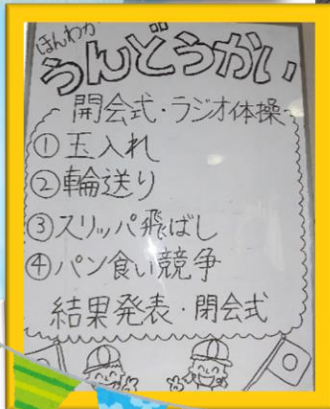 ほんわか
うんどうかい
開会式・ラジオ体操
①玉入れ
②輪送り
③スリッパ飛ばし
④パン食い競争
結果発表・閉会式